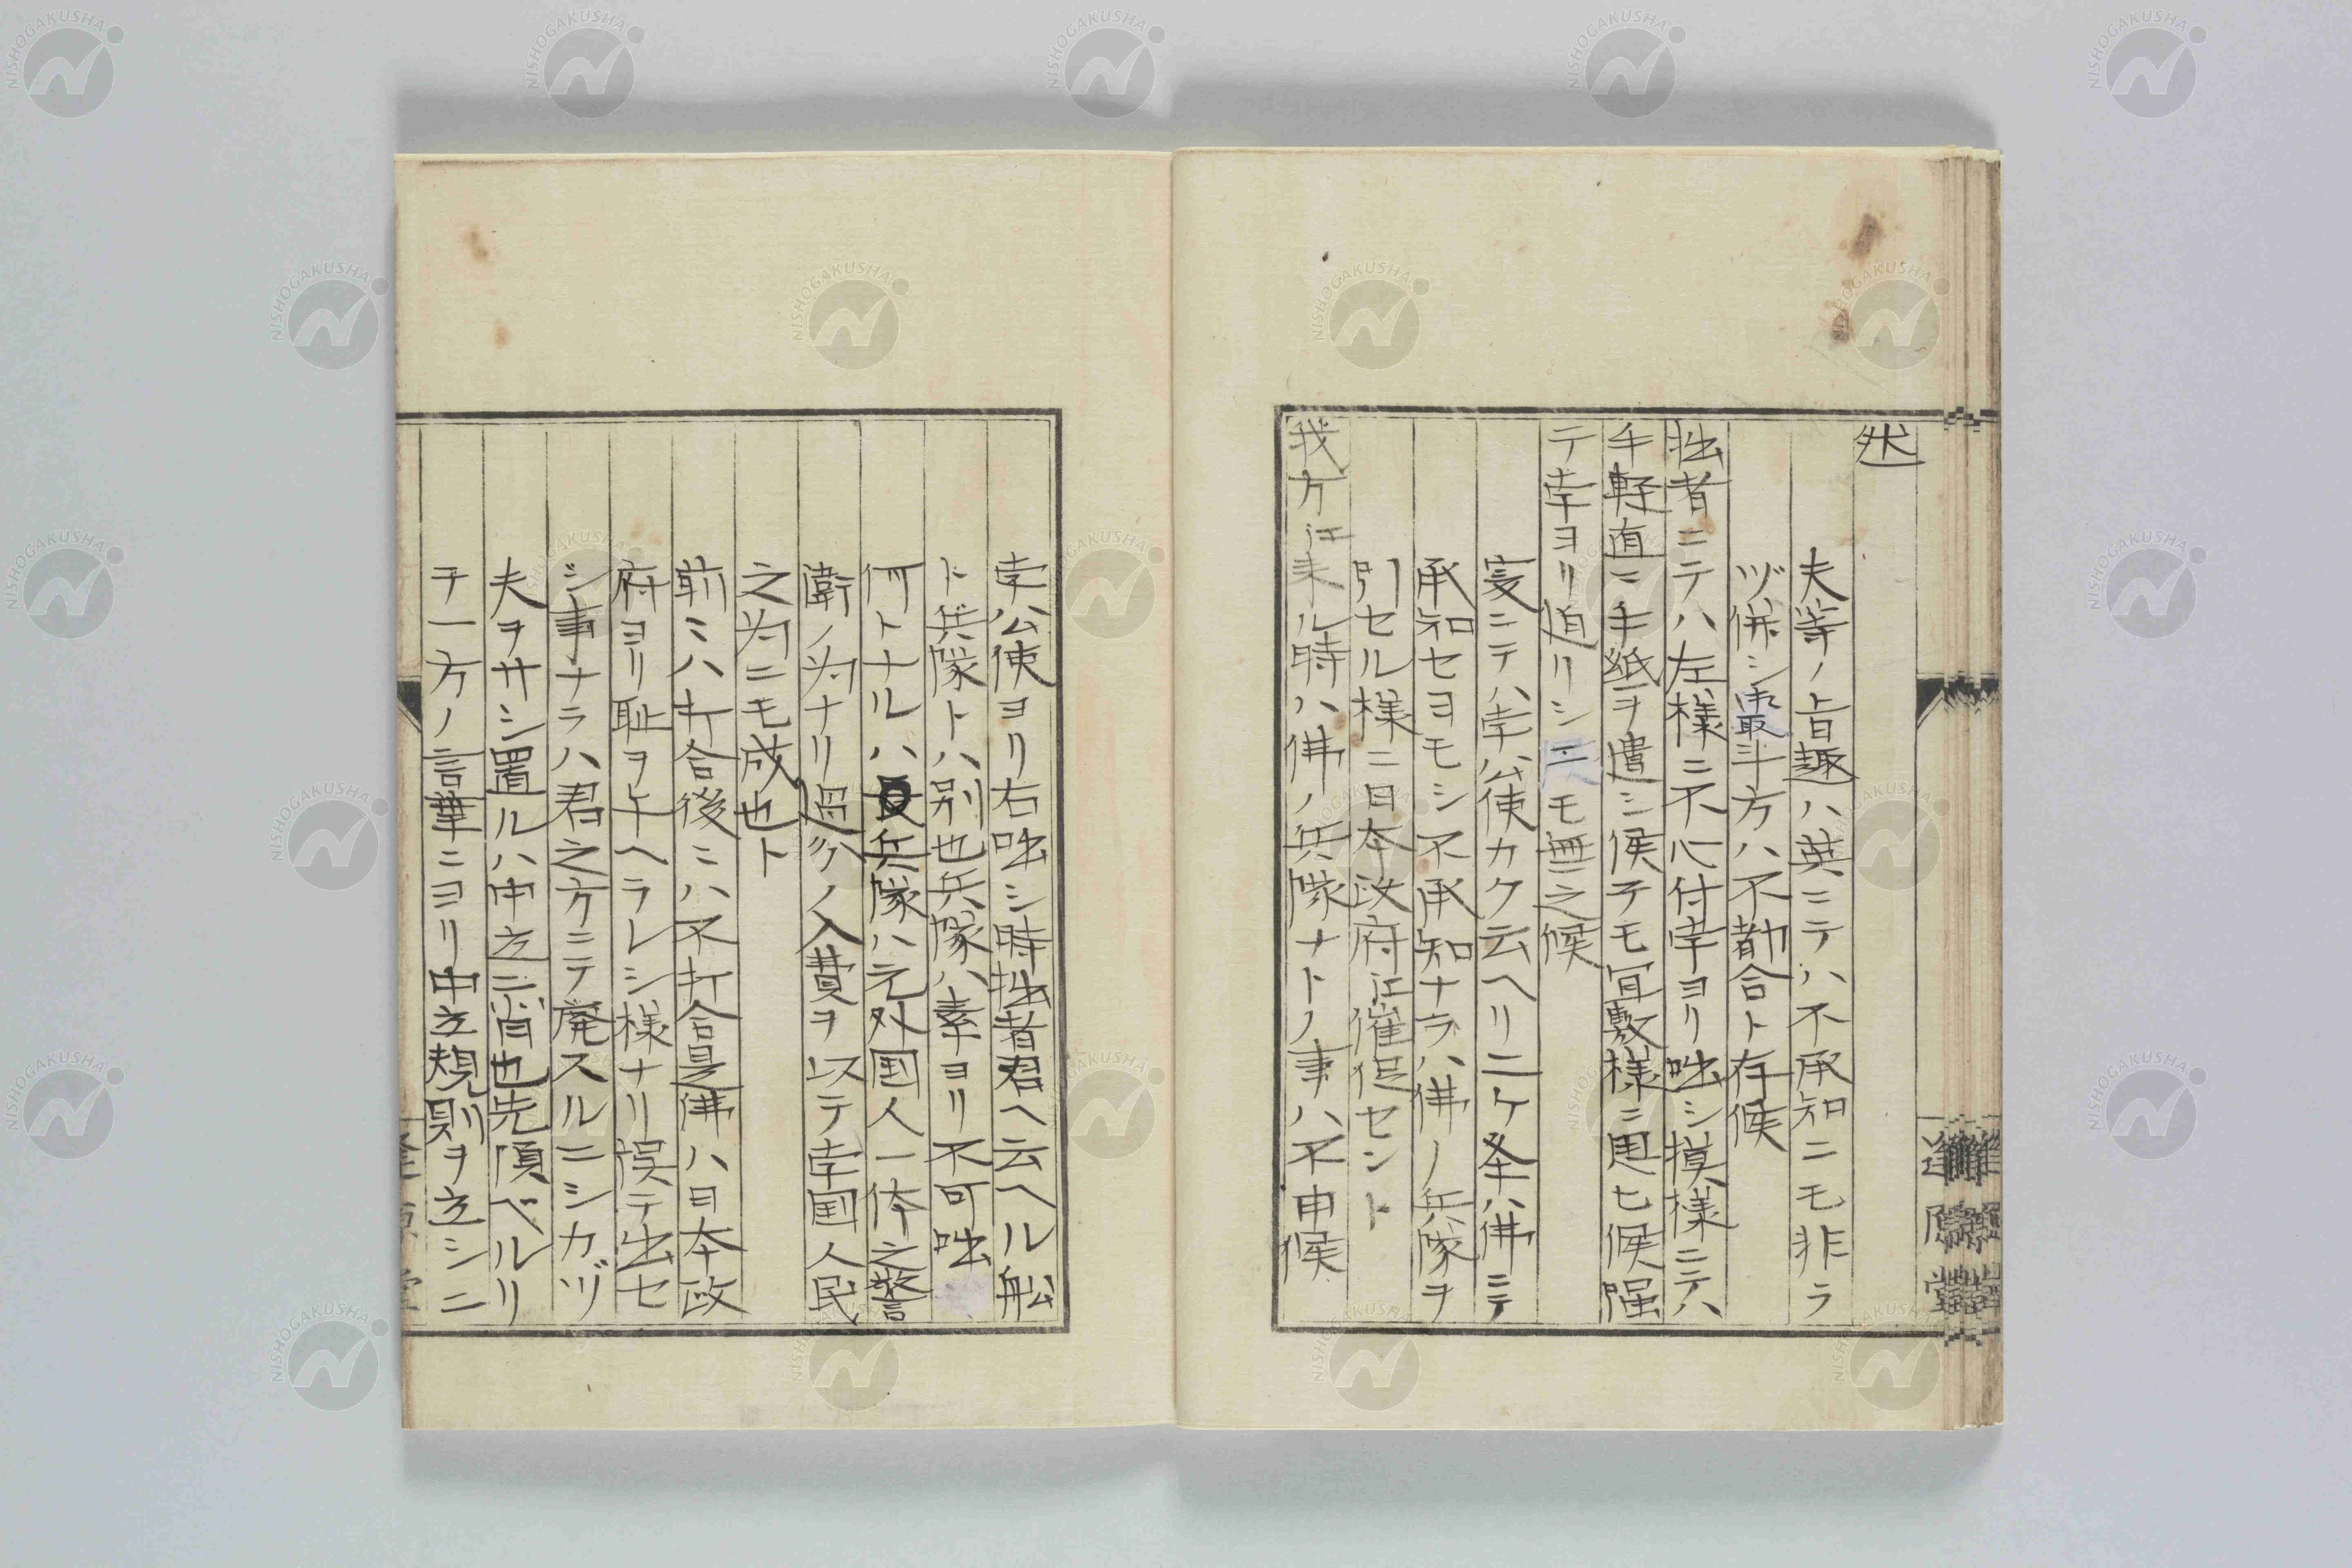 然
夫等ノ旨趣ハ英ニテハ不承知ニモ非ラ
ツ併シ最斗方ハ不都合ト存候
拙者ニテハ左様ニ不心付孛ヨリ咄シ摸様ニテハ
手軽直ニ手紙ヲ遣シ候テモ宜敷様ニ思ヒ候強
テ孛ヨリ迫リシニモ無之候
爰ニテハ孛公使カク云ヘリ二ケ条ハ佛ニテ
承知セヨモシ不承知ナラハ佛ノ兵隊ヲ
引セル様ニ日本政府江催促セント
我方江来ル時ハ佛ノ兵隊ナトノ事ハ不申候
孛公使ヨリ右咄シ時拙者君ヘ云ヘル舩
ト兵隊トハ別也兵隊ハ素ヨリ不可咄
何トナルハ兵隊ハ元外国人一体之警
衛ノ為ナリ過分ノ入費ヲ以テ孛国人民
之為ニモ成也ト
前ニハ打合後ニハ不打合是佛ハ日本政
府ヨリ恥ヲ与ヘラレシ様ナリ誤テ出セ
シ事ナラハ君之方ニテ廃スルニシカヅ
夫ヲサシ置ルハ中立ニ背也先頃ベルリ
ヲ一方ノ言葉ニヨリ中立規則ヲ立シニ
NISHOGAKUSHA